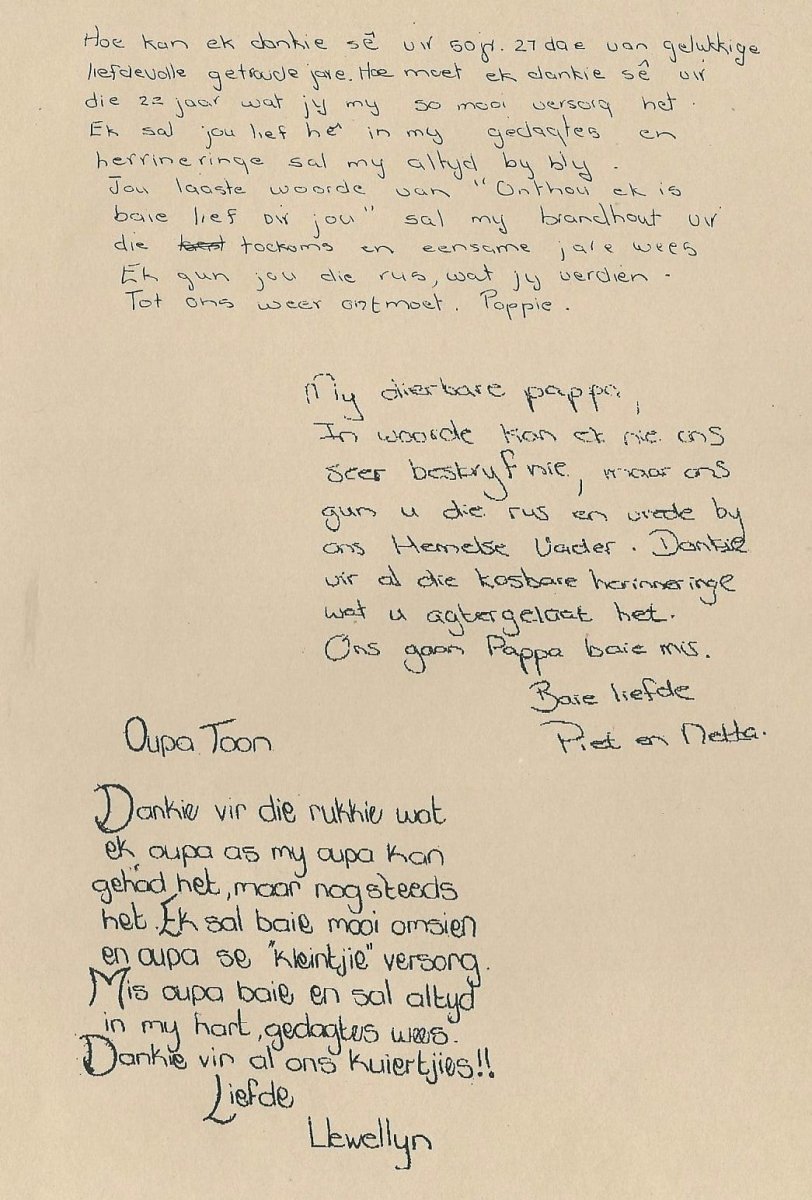 Hoe kan ek dankie sê vir 50jr. 27 dae van gelukkige
liefdevolle getroude jare. Hoe moet ek dankie sê vir
die 22 jaar wat jy my so mooi versorg het.
Ek sal jou lief hê in my gedagtes en
herrineringe sal my altyd by bly.
Jou laaste woorde van "Onthou ek is
baie lief vir jou" sal my brandhout vir
die toekoms en eensame jare wees
Ek gun jou die rus, wat jy verdien.
Tot ons weer ontmoet. Poppie.
My dierbare pappa,
In woorde kan ek nie ons
seer beskryf nie, maar ons
gun u die rus en vrede by
ons Hemelse Vader. Dankie
vir al die kosbare herinneringe
wat u agtergelaat het.
Ons gaan Pappa baie mis.
Baie liefde
Piet en Netta.
Oupa Toon
Dankie vir die rukkie wat
ek oupa as my oupa kan
gehad het, maar nog steeds
het. Ek sal baie mooi omsien
en oupa se "kleintjie" versorg.
Mis oupa baie en sal altyd
in my hart, gedagtes wees.
Dankie vir al ons kuiertjies!!
Liefde
Llewellyn